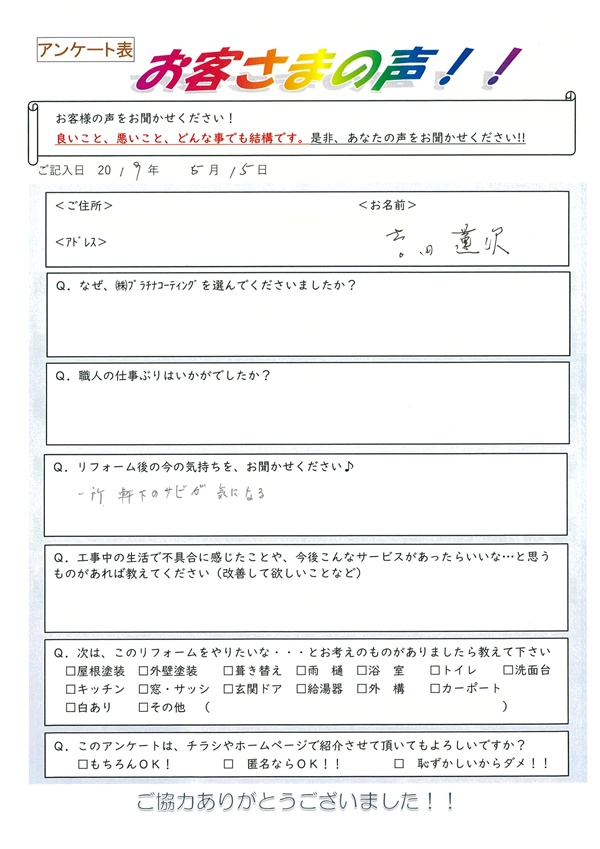 アンケート表
お客さまの声！！
お客様の声をお聞かせください！
良いこと、悪いこと、どんな事でも結構です。是非、あなたの声をお聞かせください!!
ご記入日 2019年 5月15日
＜ご住所＞ ＜お名前＞
＜ｱﾄﾞﾚｽ＞
Ｑ．なぜ、㈱ﾌﾟﾗﾁﾅｺｰﾃｨﾝｸﾞを選んでくださいましたか？
Ｑ．職人の仕事ぶりはいかがでしたか？
Ｑ．リフォーム後の今の気持ちを、お聞かせください♪
一所 軒下のサビが 気になる
Ｑ．工事中の生活で不具合に感じたことや、今後こんなサービスがあったらいいな…と思う
ものがあれば教えてください（改善して欲しいことなど）
Ｑ．次は、このリフォームをやりたいな・・・とお考えのものがありましたら教えて下さい
□屋根塗装 □外壁塗装 □葺き替え □雨 樋 □浴 室 □トイレ □洗面台
□キッチン □窓・サッシ □玄関ドア □給湯器 □外 構 □カーポート
□白あり □その他 （ ）
Ｑ．このアンケートは、チラシやホームページで紹介させて頂いてもよろしいですか？
□もちろんＯＫ！ □ 匿名ならＯＫ！！ □ 恥ずかしいからダメ！！
ご協力ありがとうございました！！